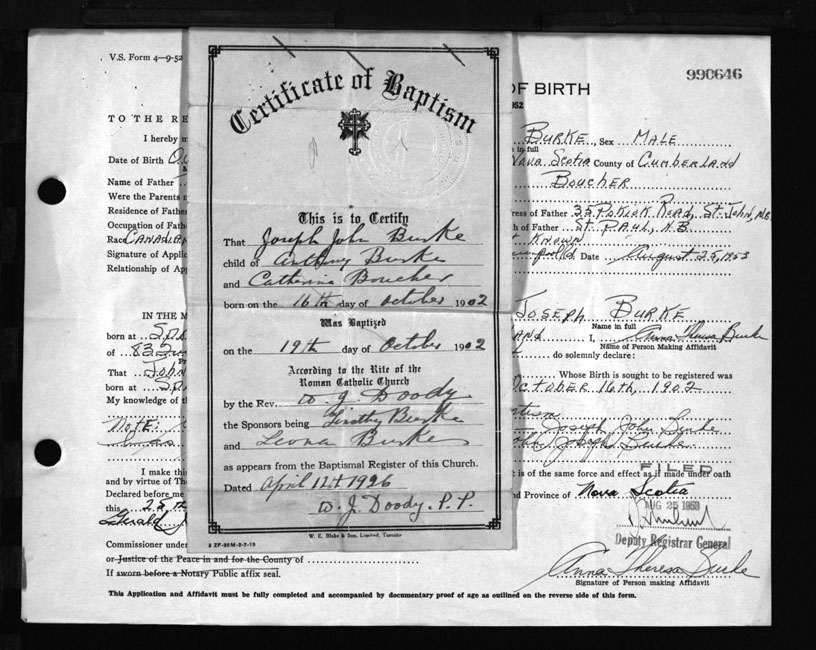 V.S. Form 4—9-52
990646
OF BIRTH
TO THE RE
I hereby
BURKE, Sex MALE
in full
Date of Birth
Nova Scotia County of CUMBERLAND
Name of Father
BOUCHER
Were the Parents
Residence of Father
ress of Father 35 POKIOK ROAD, ST. JOHN, N.B.
Occupation of Fath
h of Father ST. PAUL, N.B.
Race CANADIAN
KNOWN
Signature of Applic
Date August 25, 1953
Relationship of Ap
Certificate of Baptism
This is to Certify
That Joseph John Burke
child of Anthony Burke
and Catherine Boucher
born on the 16th day of October 1902
Was Baptized
on the 19th day of October 1902
According to the Rite of the
Roman Catholic Church
by the Rev. W. J. Doody
the Sponsors being Timothy Burke
and Leona Burke
as appears from the Baptismal Register of this Church.
Dated April 12th 1926
W. J. Doody, P. P.
W. E. Blake & Son, Limited, Toronto
IN THE M
JOSEPH BURKE
Name in full
born at
I, Anna Theresa Burke
Name of Person Making Affidavit
of 835
do solemnly declare:
That JOHN
Whose Birth is sought to be registered was
born at
OCTOBER 16th, 1902
My knowledge of
NOTE:
Joseph John Burke
John Joseph Burke
I make this
t is of the same force and effect as if made under oath
and by virtue of The
FILED
Declared before me
nd Province of Nova Scotia
this 25th
AUG 25 1953
Gerald
Deputy Registrar General
Commissioner under
or Justice of the Peace in and for the County of
If sworn before a Notary Public affix seal.
Anna Theresa Burke
Signature of Person making Affidavit
This Application and Affidavit must be fully completed and accompanied by documentary proof of age as outlined on the reverse side of this form.